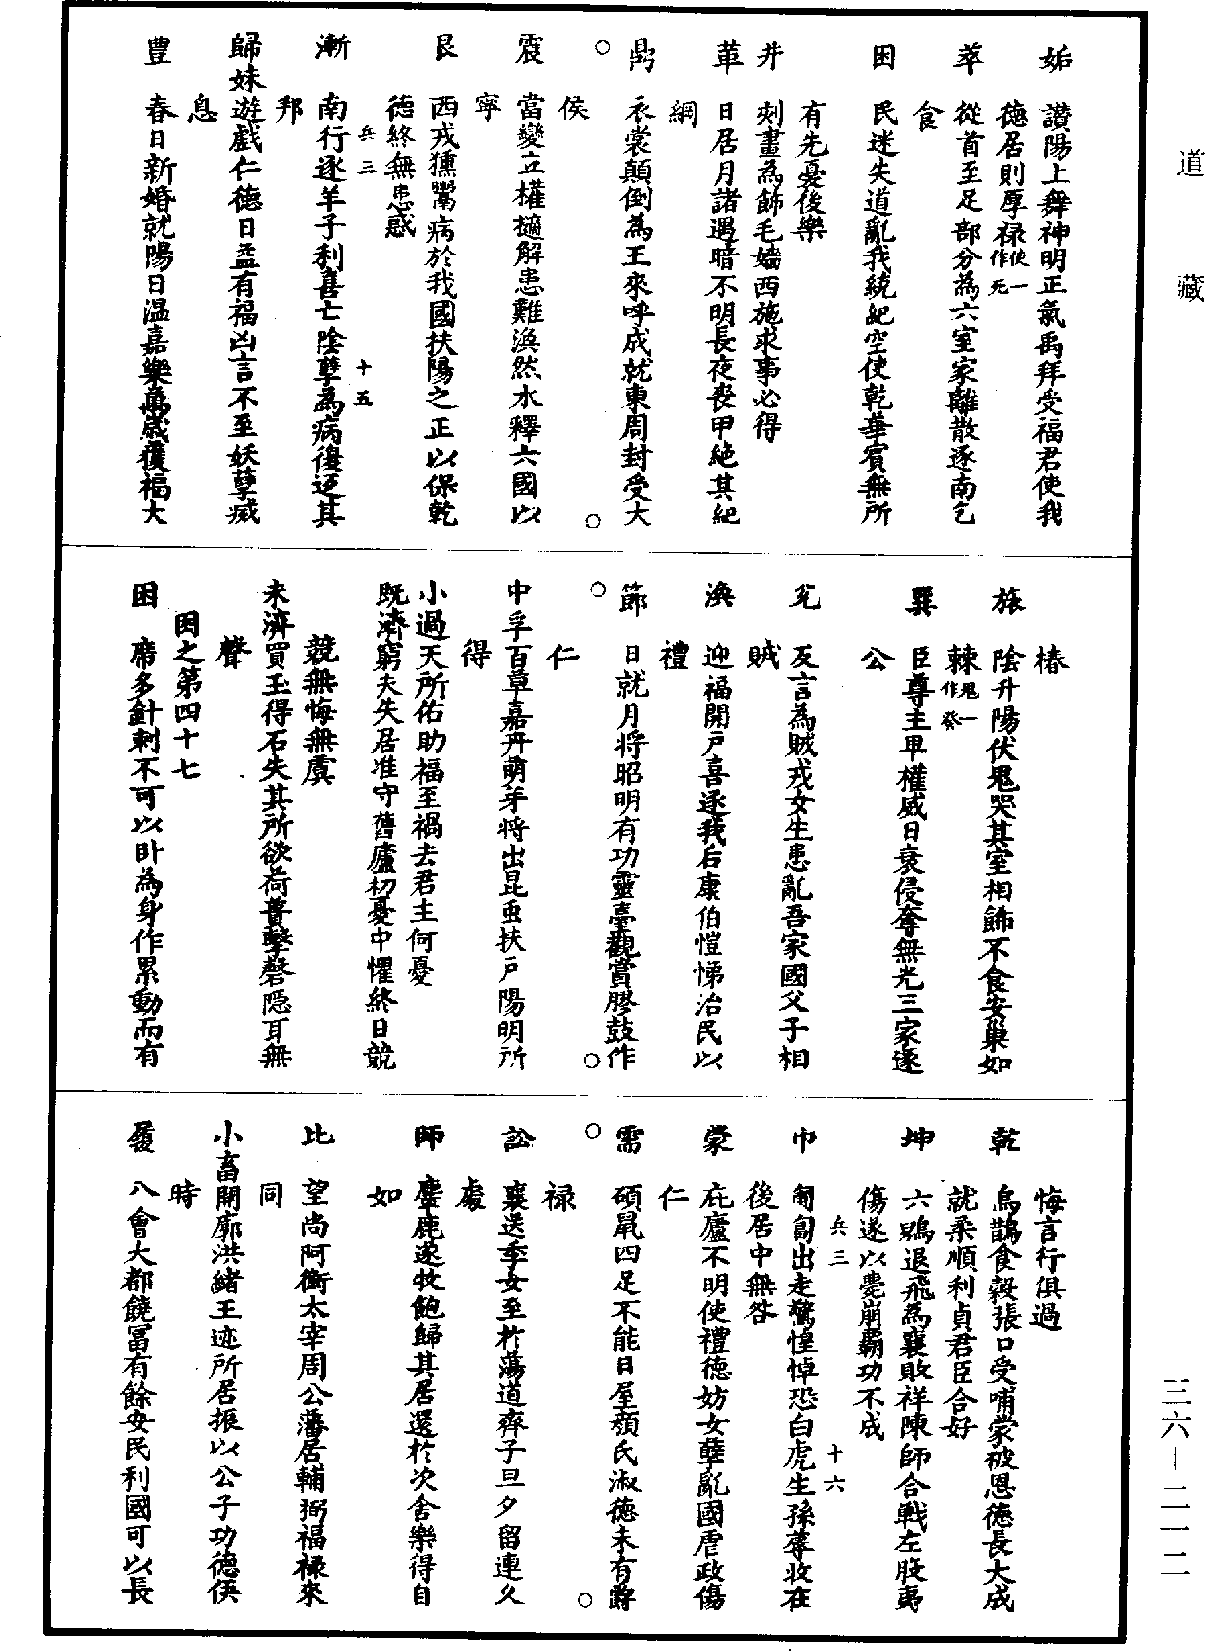 道藏
姤　讚陽上舞神明正氣禹拜受福君使我
德居則厚祿使一作死
萃　從首至足部分為六室家離散逐南乞
食
困　民迷失道亂我統紀空使乾華賓無所
有先憂後樂
井　刻畫為飾毛嬙西施求事必得
革　日居月諸遇暗不明長夜喪甲絶其紀
綱
鼎　衣裳顛倒為王來呼成就東周封受大
侯
震　當變立權擿解患難渙然水釋六國以
寧
艮　西戎獯鬻病於我國扶陽之正以保乾
德終無患惑
兵三　十五
漸　南行逐羊子利喜亡陰孽為病復迋其
邦
歸妹遊戲仁德日益有福凶言不至妖孽滅
息
豐　春日新婚就陽日温嘉樂萬歲獲福大
椿
旅　陰升陽伏鬼哭其室相飾不食安巢如
棘鬼一作癸
巽　臣尊主卑權威日衰侵奪無光三家逐
公
兌　反言為賊戎女生患亂吾家國父子相
賊
渙　迎福開戶喜逐我后康伯愷悌治民以
禮
節　日就月將昭明有功靈臺觀賞膠鼓作
仁
中孚百草嘉卉萌芽將出昆虫扶戶陽明所
得
小過天所佑助福至禍去君主何憂
既濟窮夫失居准守舊廬初憂中懼終日兢
兢無悔無虞
未濟買玉得石失其所欲荷蕢擊磬隱耳無
聲
困之第四十七
困　席多針刺不可以卧為身作累動而有
悔言行俱過
乾　烏鵲食穀張口受哺蒙被恩德長大成
就柔順利貞君臣合好
坤　六鷁退飛為襄敗祥陳師合戰左股夷
傷遂以薨崩霸功不成
兵三　十六
屯　匍匐出走驚惶悼恐白虎生孫蓐收在
後居中無咎
蒙　庇廬不明使禮德妨女孽亂國虐政傷
仁
需　碩鼠四足不能日屋顏氏淑德未有爵
祿
訟　襄送季女至於蕩道齊子旦夕留連久
處
師　麞鹿逐牧飽歸其居還於次舍樂得自
如
比　望尚阿衡太宰周公藩居輔弼福祿來
同
小畜開廓洪緒王迹所居振以公子功德俟
時
履　八會大都饒富有餘安民利國可以長
三六—二一二